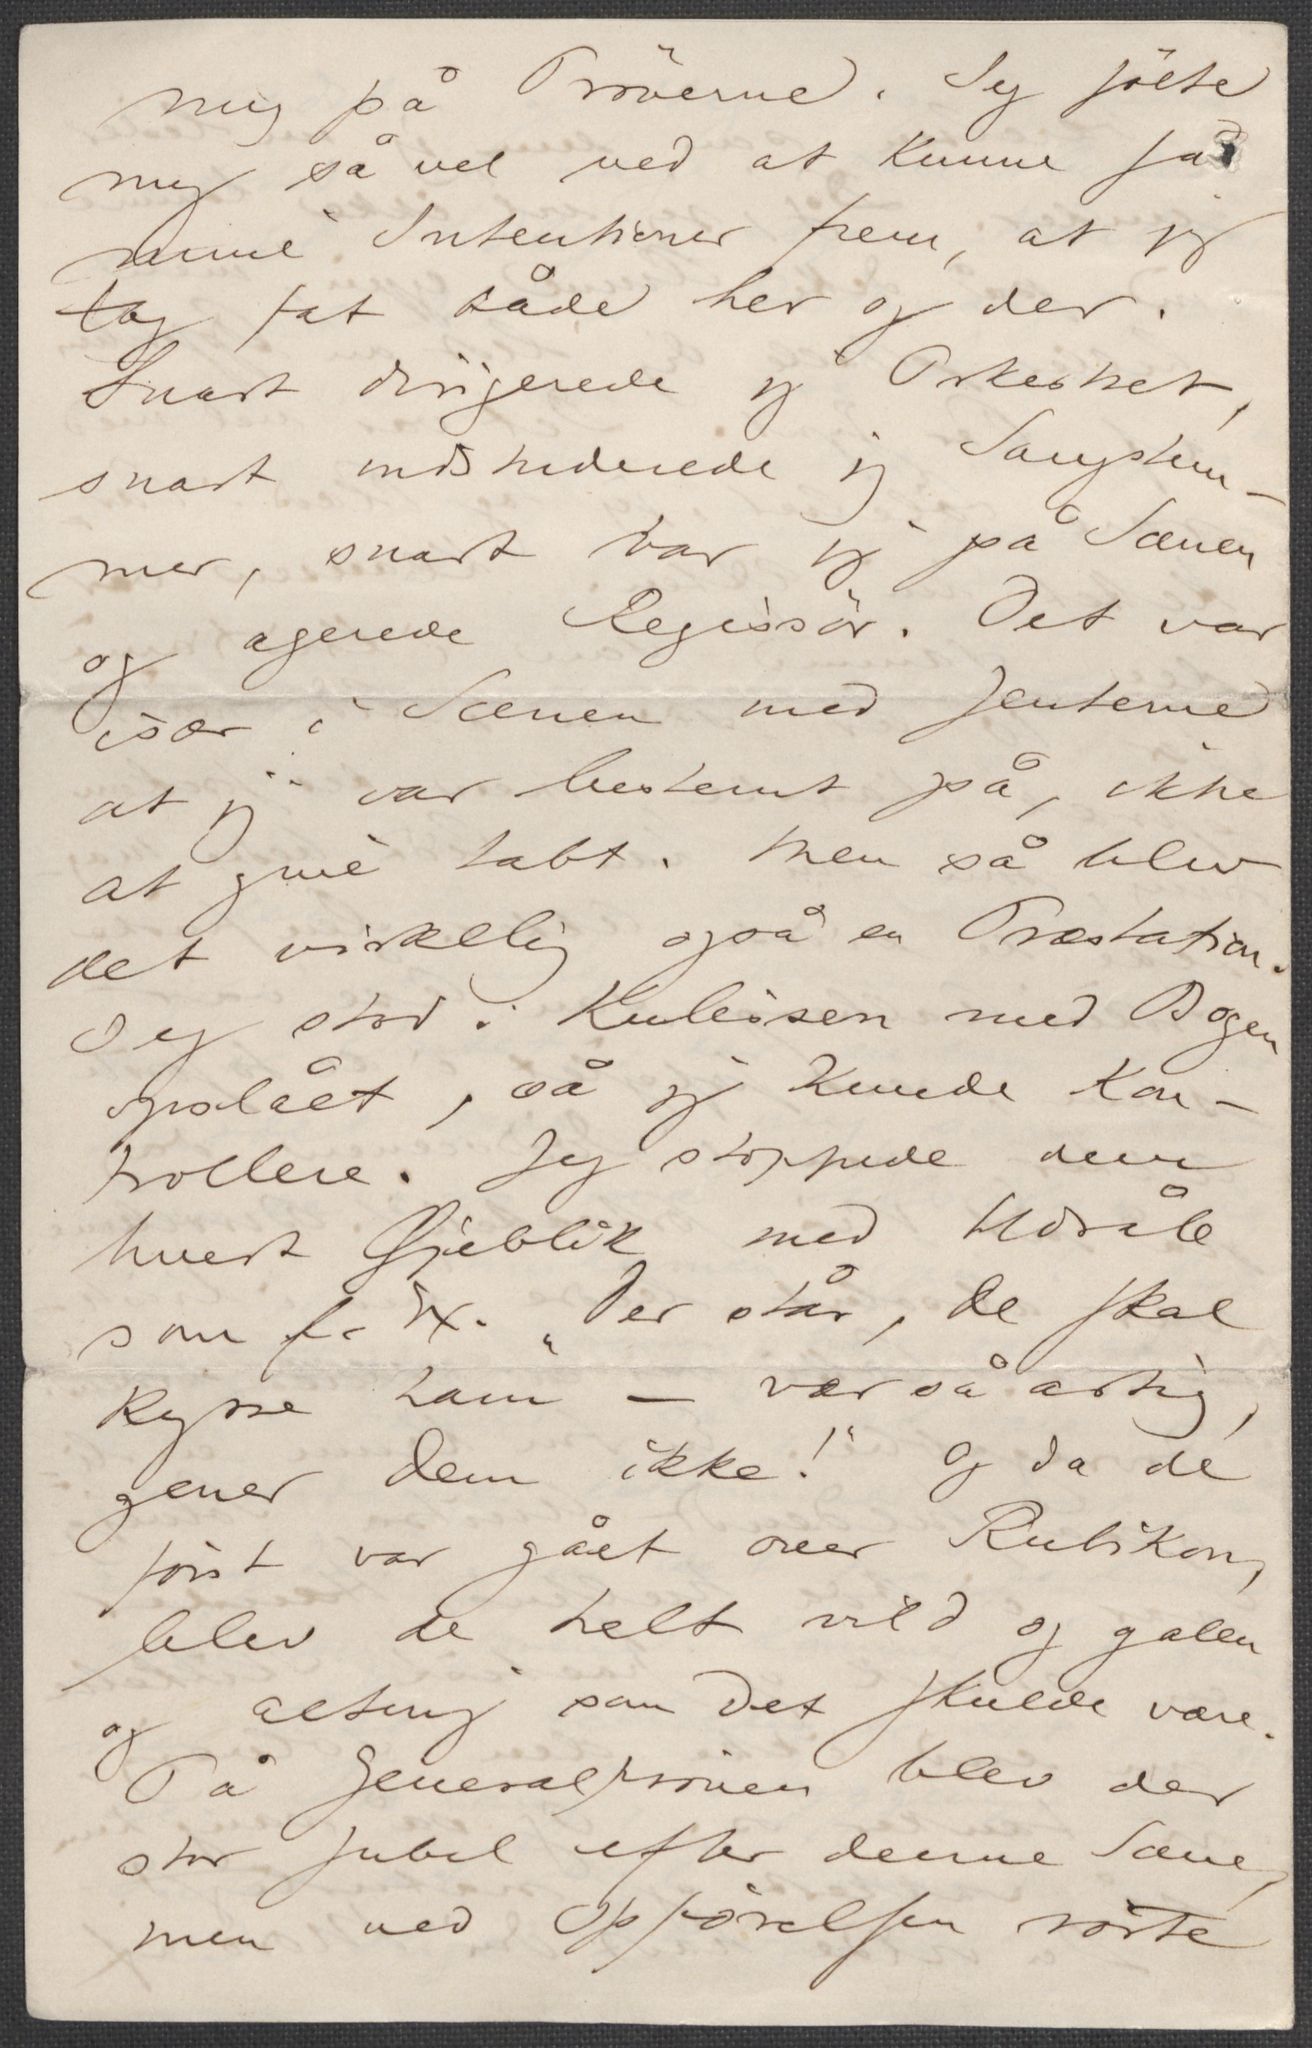 mig på Prøverne. Jeg følte
mig så vel ved at kunne få
mine Intentioner frem, at jeg
tog fat både her og der.
Snart dirigerede jeg Orkestret,
snart indstuderede jeg Sangstem-
mer, snart var jeg på Scenen
og agerede Regissör. Det var
især i Scenen med Jenterne
at jeg var bestemt på, ikke
at give tabt. Men så blev
det virkelig også en Præstation.
Jeg stod i Kulissen med Bogen
opslået, så jeg kunde kon-
trollere. Jeg stoppede dem
hvert Øjeblik med Udråb
som f. Ex. „Der står, de skal
kysse ham – vær så artig,
gener Dem ikke!“ Og da de
först var gået over Rubikon,
blev de helt vild og galen
og alting som det skulde være.
På Generalprøven blev der
stor Jubel efter denne Scene,
men ved Opførelsen rørte